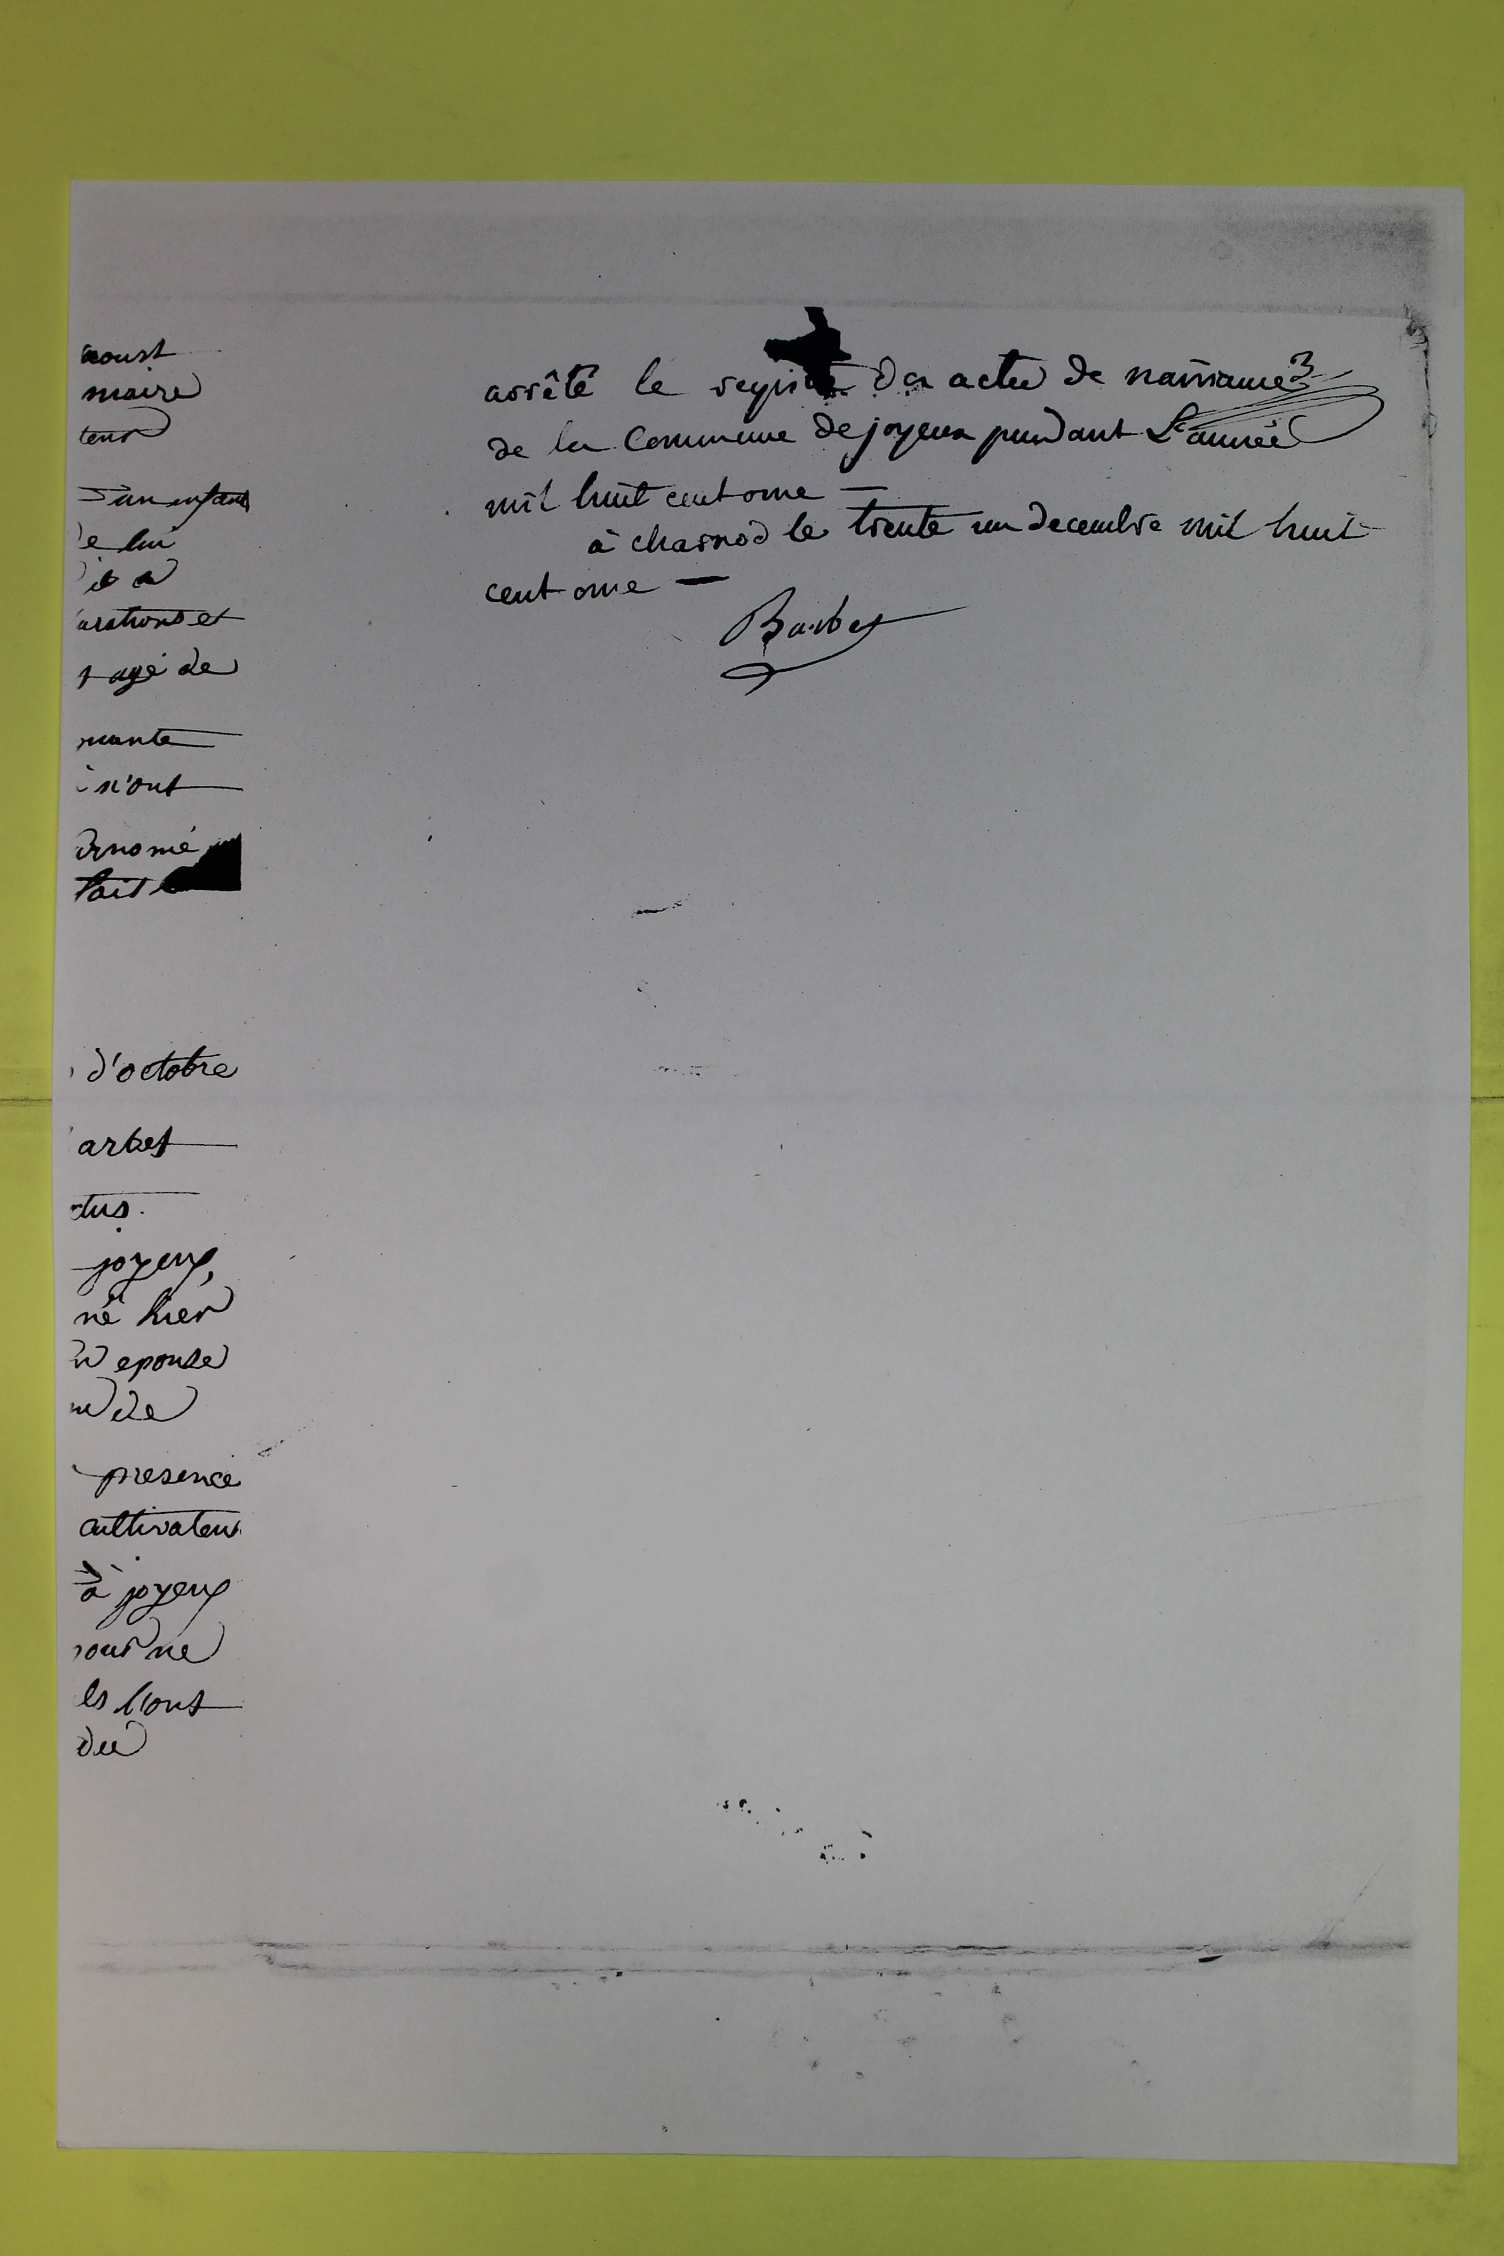 aoust
maire
teur
d'un enfant
de lui
et a
arations et
t agé de
mante
n'ont
rnomé
fait
d'octobre
arbet
ctus.
joyeux,
né hier
epouse
de
presence
cultivateur
à joyeux
pour ne
ls l'ont
du
arrêté le registre des actes de naissances
de la Commune de joyeux pendant L'année
mil huit cent onze —
à charnod le trente un decembre mil huit
cent onze —
Barbet